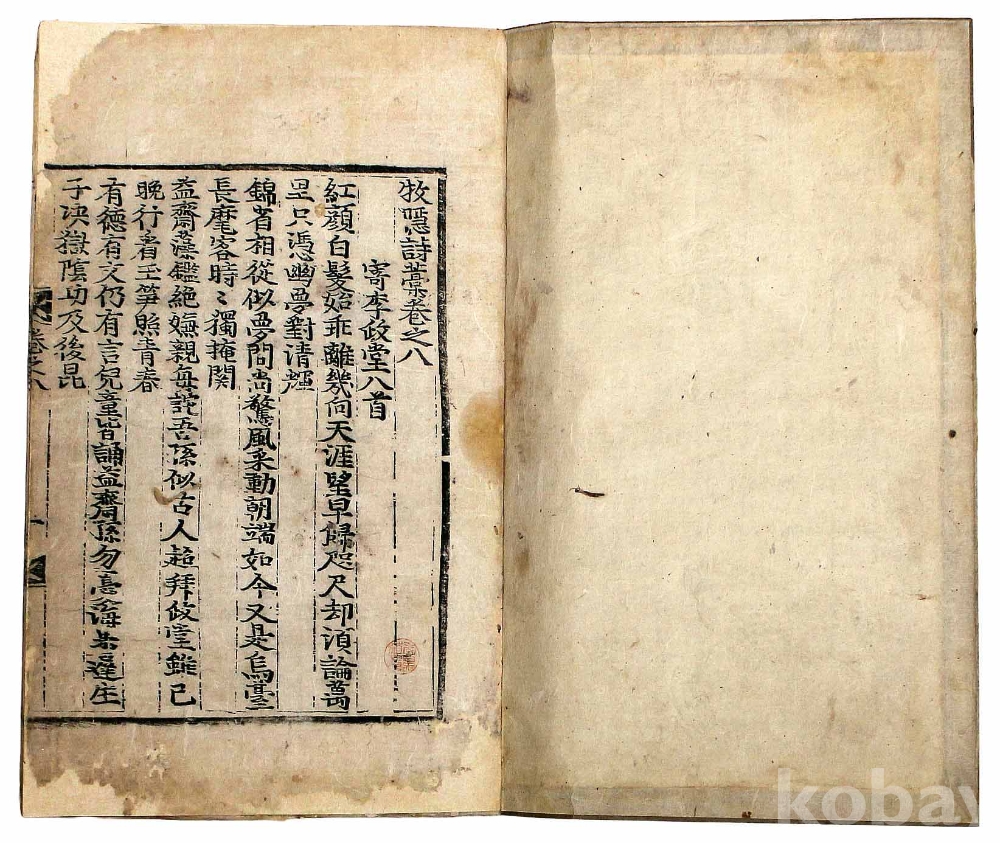 牧隱詩藁卷之八
寄李政堂八首
紅顔白髮始乖離幾向天涯望早歸咫尺却湏論萬
里只憑幽夢對清輝
錦省相從似夢間尚驚風采動朝端如今又是烏臺
長麾客時〻獨掩関
益齋藻鑑絶嫵親每詑吾孫似古人超拜政堂雖已
晩行看玉笋照青春
有德有文仍有言兒童皆誦益齋孫勿嘉逢庄
子决獄陰功及後昆
卷之八
一
kobay